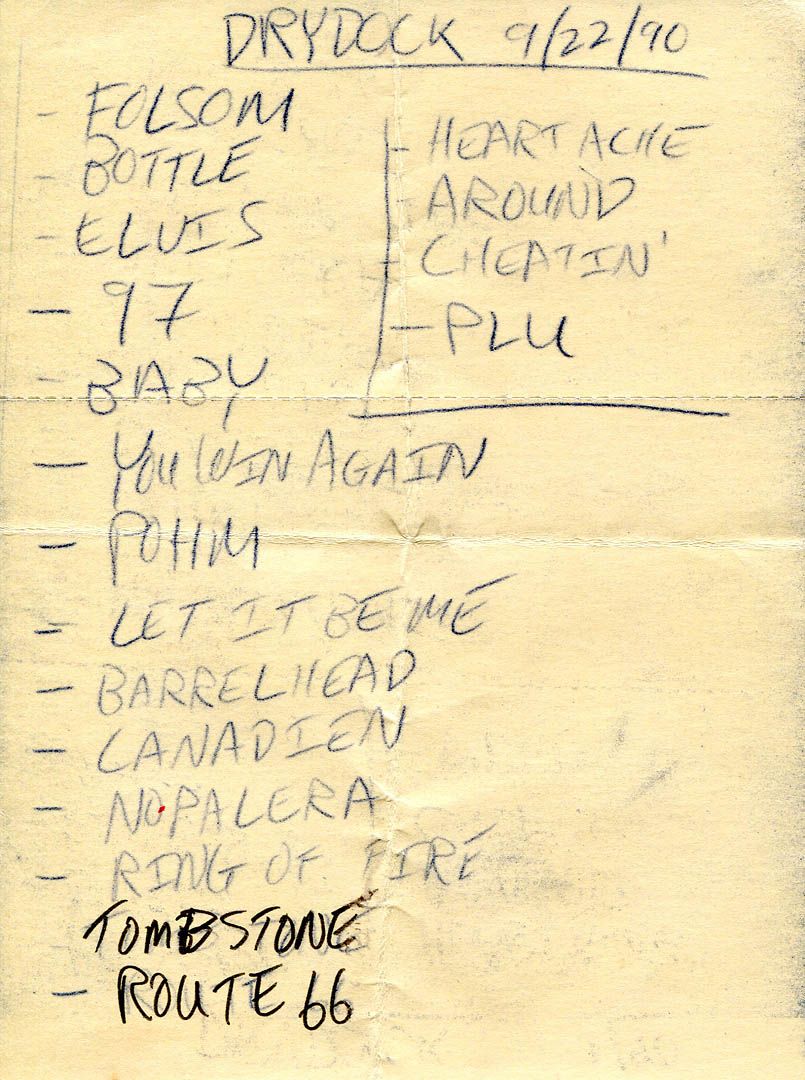 DRYDOCK 9/22/90
- FOLSOM
- BOTTLE
- ELVIS
- 97
- BABY
- HEARTACHE
- AROUND
- CHEATIN'
- PLU
- YOU WIN AGAIN
- POHM
- LET IT BE ME
- BARRELHEAD
- CANADIEN
- NOPALERA
- RING OF FIRE
TOMBSTONE
- ROUTE 66